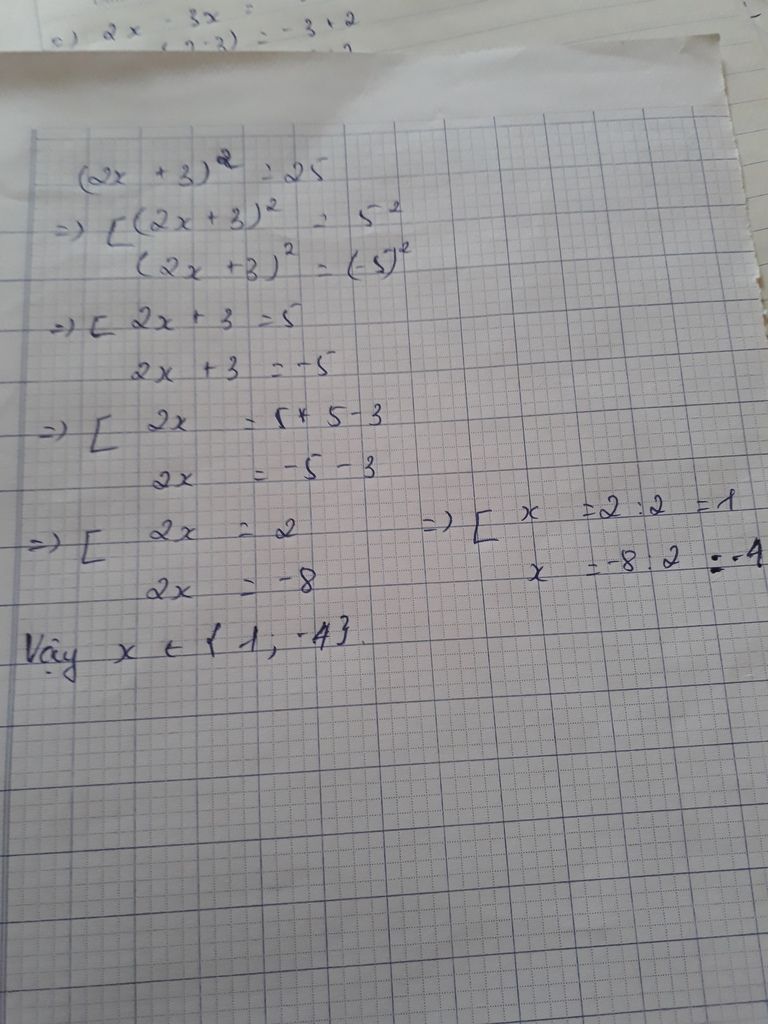 =) 2x - 3x =
= -3 + 2
(2x + 3)² = 25
=) [ (2x + 3)² = 5²
(2x + 3)² = (-5)²
=) [ 2x + 3 = 5
2x + 3 = -5
=) [ 2x = 5 - 3
2x = -5 - 3
=) [ 2x = 2 =) [ x = 2 : 2 = 1
2x = -8 x = -8 : 2 = -4
Vậy x ∈ { 1 ; -4}.